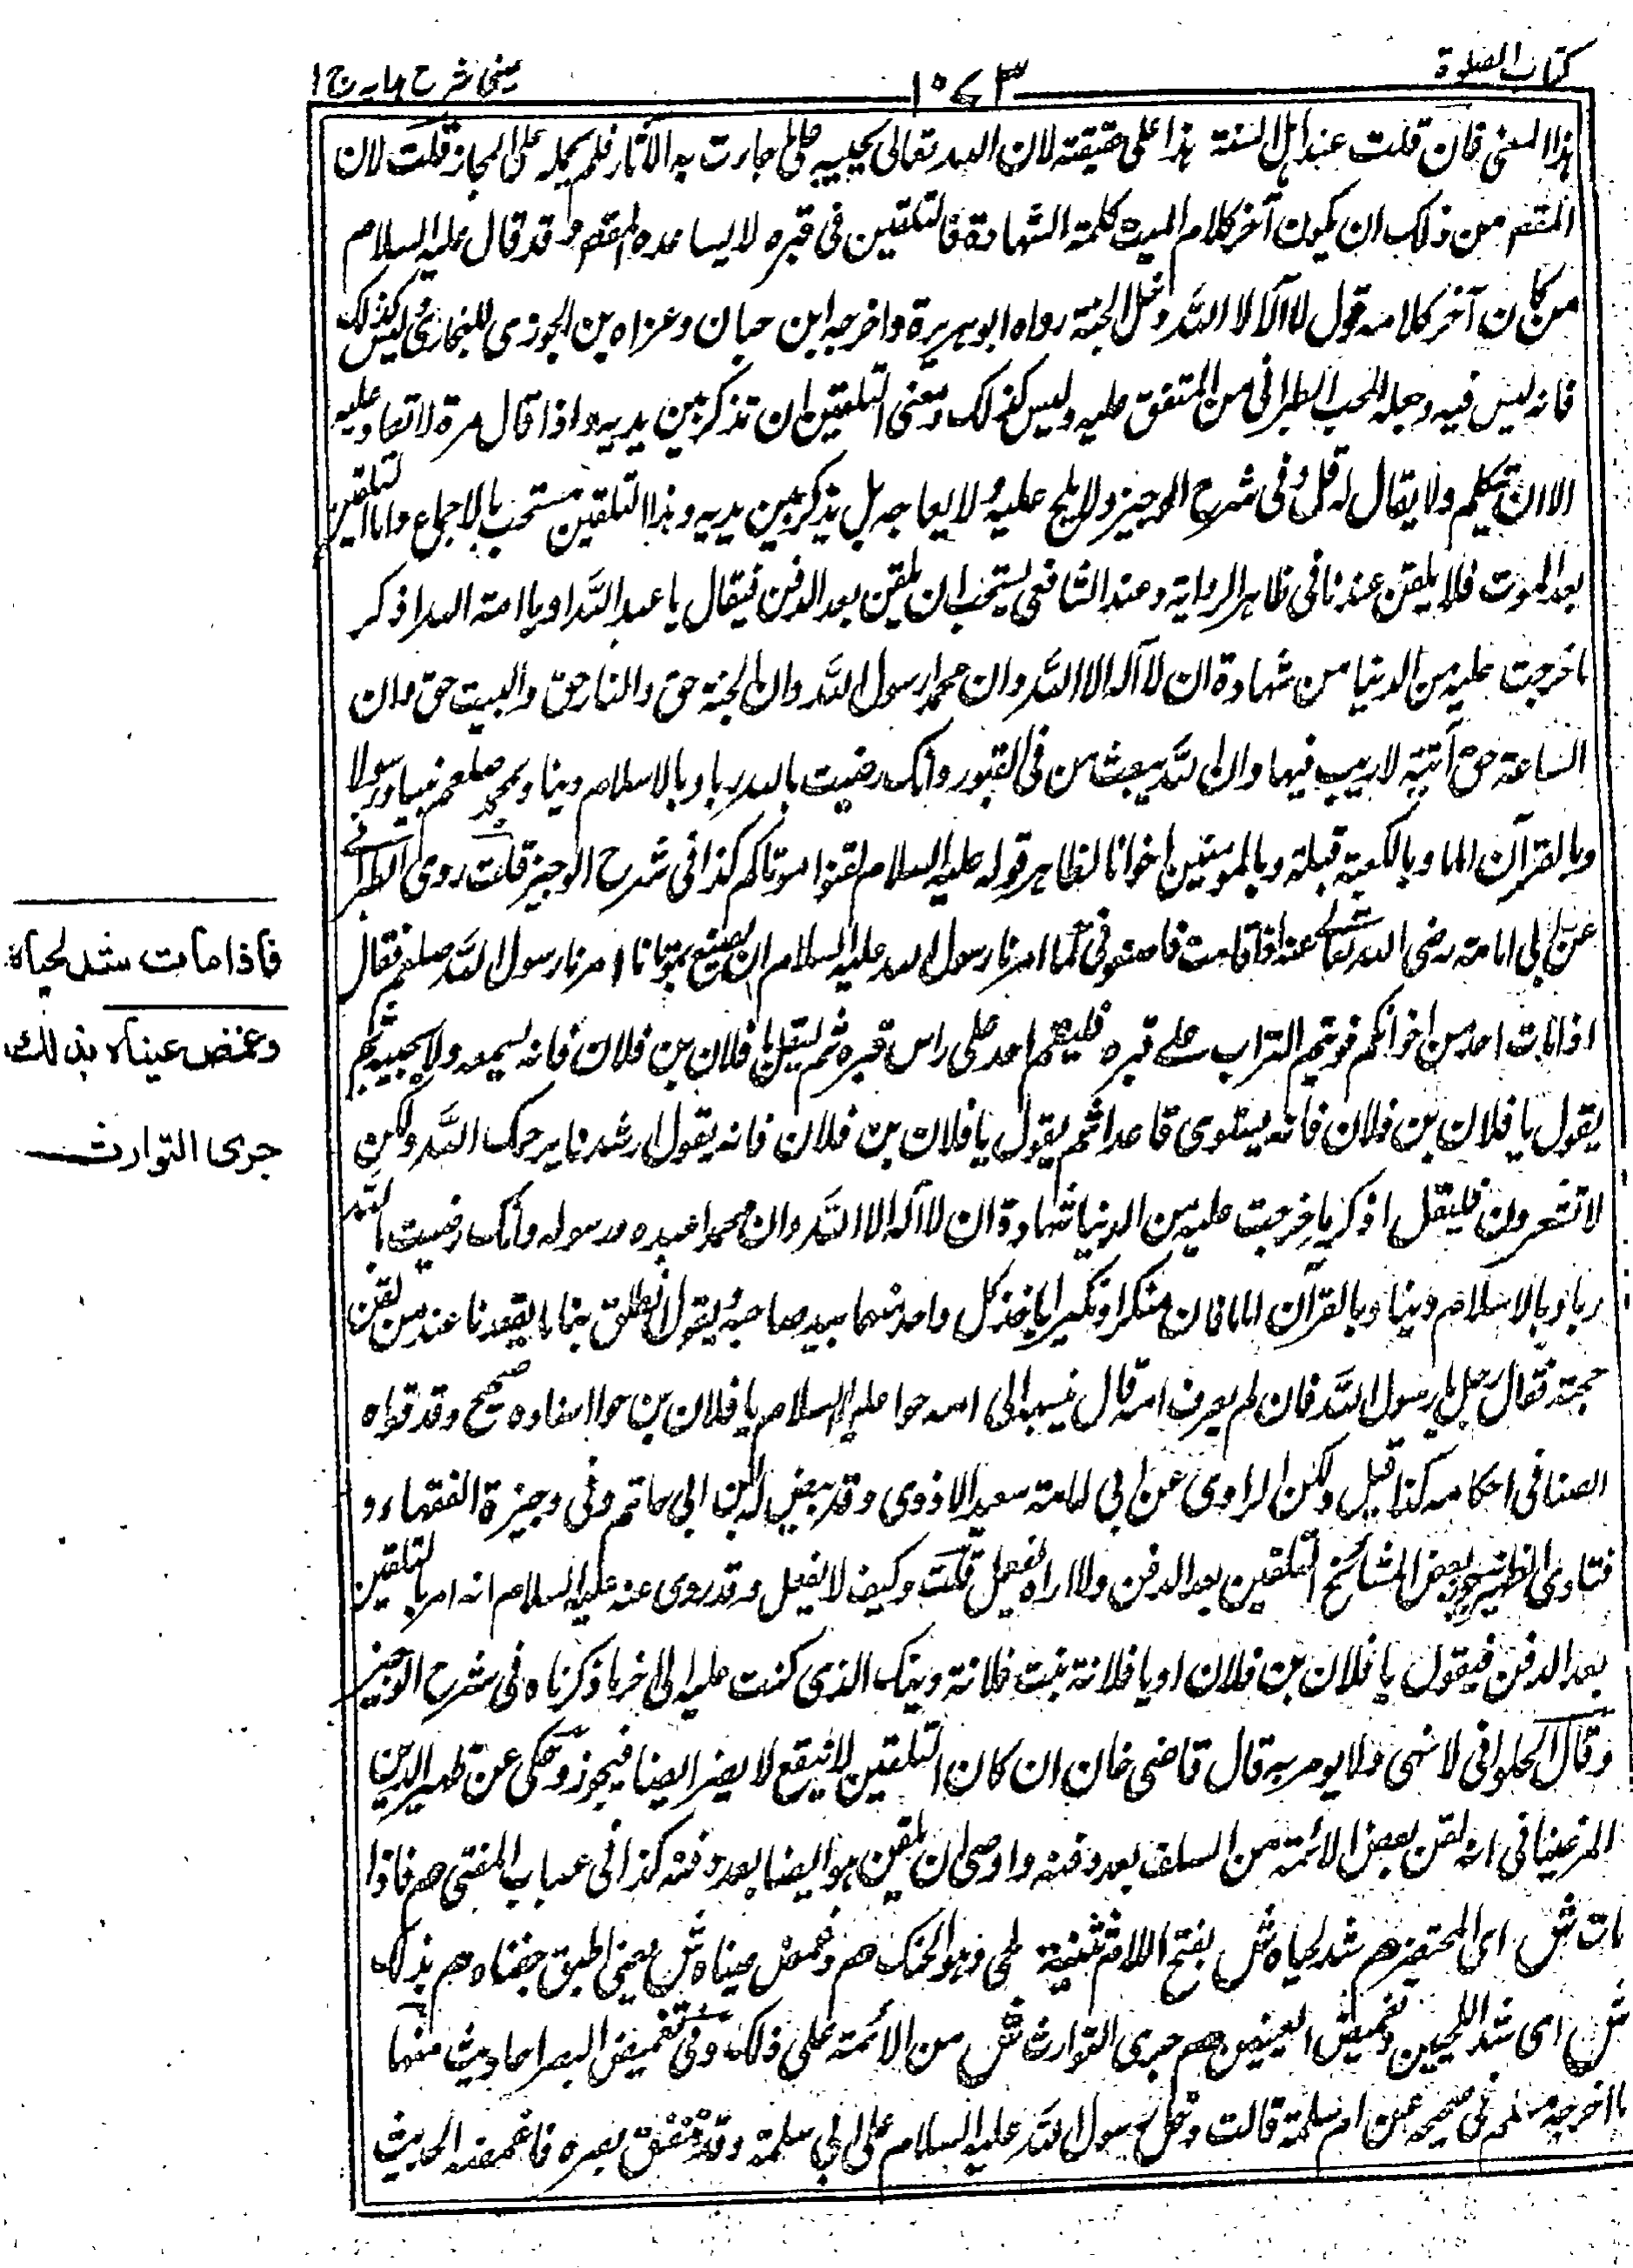 كتاب الصلوة
١٠٧٣
عينى شرح هدايه ج ١
هذا المعنى فان قلت عند اهل السنة هذا على حقيقته لان الله تعالى يحييه على ما جاءت به الآثار فلم يحمله على المجاز قلت لان
المقصد من ذلك ان يكون آخر كلام الميت كلمة الشهادة فالتلقين فى قبره لا يساعده المقصد وقد قال عليه السلام
من كان آخر كلامه قول لا اله الا الله دخل الجنة رواه ابو هريرة واخرجه ابن حبان وعزاه بن الجوزى للبخارى وليس كذلك
فانه ليس فيه وجعله المحب الطبرانى من المتفق عليه وليس كذلك ومعنى التلقين ان تذكر بين يديه واذا قال مرة لا تعاد عليه
الا ان تيكلم ولا يقال له قل وفى شرح الوجيز ولا يلح عليه ولا يواجه بل يذكر بين يديه وهذا التلقين مستحب بالاجماع واما التلقين
بعد الموت فلا يلقن عندنا فى ظاهر الرواية وعند الشافعى يستحب ان يلقن بعد الدفن فيقال يا عبد الله او يا امة الله اذكر
ما خرجت عليه من الدنيا من شهادة ان لا اله الا الله وان محمدا رسول الله وان الجنة حق والنار حق والبيت حق وان
الساعة حق آتية لا ريب فيها وان الله يبعث من فى القبور وانك رضيت بالله ربا وبالاسلام دينا وبمحمد صلعم نبيا ورسولا
وبالقرآن اماما وبالكعبة قبلة وبالمؤمنين اخوانا لظاهر قوله عليه السلام لقنوا موتاكم كذا فى شرح الوجيز قلت روى الطبرانى
عن ابى امامة رضى الله تعالى عنه اذا انا مت فاصنعوا فى كما امرنا رسول الله عليه السلام ان يصنع بموتانا امرنا رسول الله صلعم فقال
اذا مات احد من اخوانكم فسويتم التراب على قبره فليقم احد على راس قبره ثم ليقل يا فلان بن فلان فانه يسمعه ولا يجيبه ثم
يقول يا فلان بن فلان فانه يستوى قاعدا ثم يقول يا فلان بن فلان فانه يقول ارشدنا يرحمك الله ولكن
لا تشعرون فليقل اذكر ما خرجت عليه من الدنيا شهادة ان لا اله الا الله وان محمدا عبده ورسوله وانك رضيت بالله
ربا وبالاسلام دينا وبالقرآن اماما فان منكرا ونكيرا ياخذ كل واحد منهما بيد صاحبه ويقول انطلق بنا ما يقعدنا عند من لقن
حجته فقال رجل يا رسول الله فان لم يعرف امه قال ينسبه الى امه حوا عليها السلام يا فلان بن حوا اسناده صحيح وقد قواه
الضيا فى احكامه كذا قيل ولكن الراوى عن ابى امامة سعيد الازدى وقد بيض له ابن ابى حاتم وفى وجيزة الفقهاء و
فتاوى الظهير جوز بعض المشائخ التلقين بعد الدفن ولا اراه يفعل قلت وكيف لا يفعل وقد روى عنه عليه السلام انه امر بالتلقين
بعد الدفن فيقول يا فلان بن فلان او يا فلانة بنت فلانة دينك الذى كنت عليه الى آخر ما ذكرناه فى شرح الوجيز
وقال الحلوانى لا ينهى ولا يومر به قال قاضى خان ان كان التلقين لا ينفع لا يضر ايضا فيجوز وحكى عن ظهير الدين
المرغينانى انه لقن بعض الائمة من السلف بعد دفنه واوصى ان يلقن هو ايضا بعد دفنه كذا فى عباب المفتى هم فاذا
مات ش اى المحتضر هم شد لحياه ش بفتح اللام تثنية لحى وهو الحنك هم وغمض عيناه ش يعنى اطبق جفناه هم بذلك
ش اى شد اللحيين وتغميض العينين هم جرى التوارث ش من الائمة على ذلك وفى تغميض البصر احاديث منها
ما اخرجه مسلم فى صحيحه عن ام سلمة قالت دخل رسول الله عليه السلام على ابى سلمة وقد شق بصره فاغمضه الحديث
فاذا مات شد لحياه
وغمض عيناه بذلك
جرى التوارث